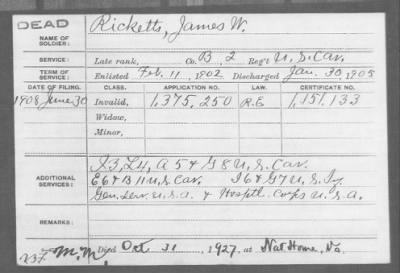 DEAD
NAME OF SOLDIER: Ricketts, James W.
SERVICE: Late rank, Co. B, 2 Reg't U.S. Cav.
TERM OF SERVICE: Enlisted Feb. 11, 1902 Discharged Jan. 30, 1905
DATE OF FILING. CLASS. APPLICATION NO. LAW. CERTIFICATE NO.
1908 June 30 Invalid, 1,375,250 R.E. 1,151,133
Widow,
Minor,
ADDITIONAL SERVICES: I3, L4, A5 & G8 U.S. Cav.
E6 & B11 U.S. Cav. I6 & G7 U.S. Iy.
Gen. Serv. U.S.A. & Hospitl. Corps U.S.A.
REMARKS:
Died Oct 31, 1927, at Nat Home, Va.
M.M.